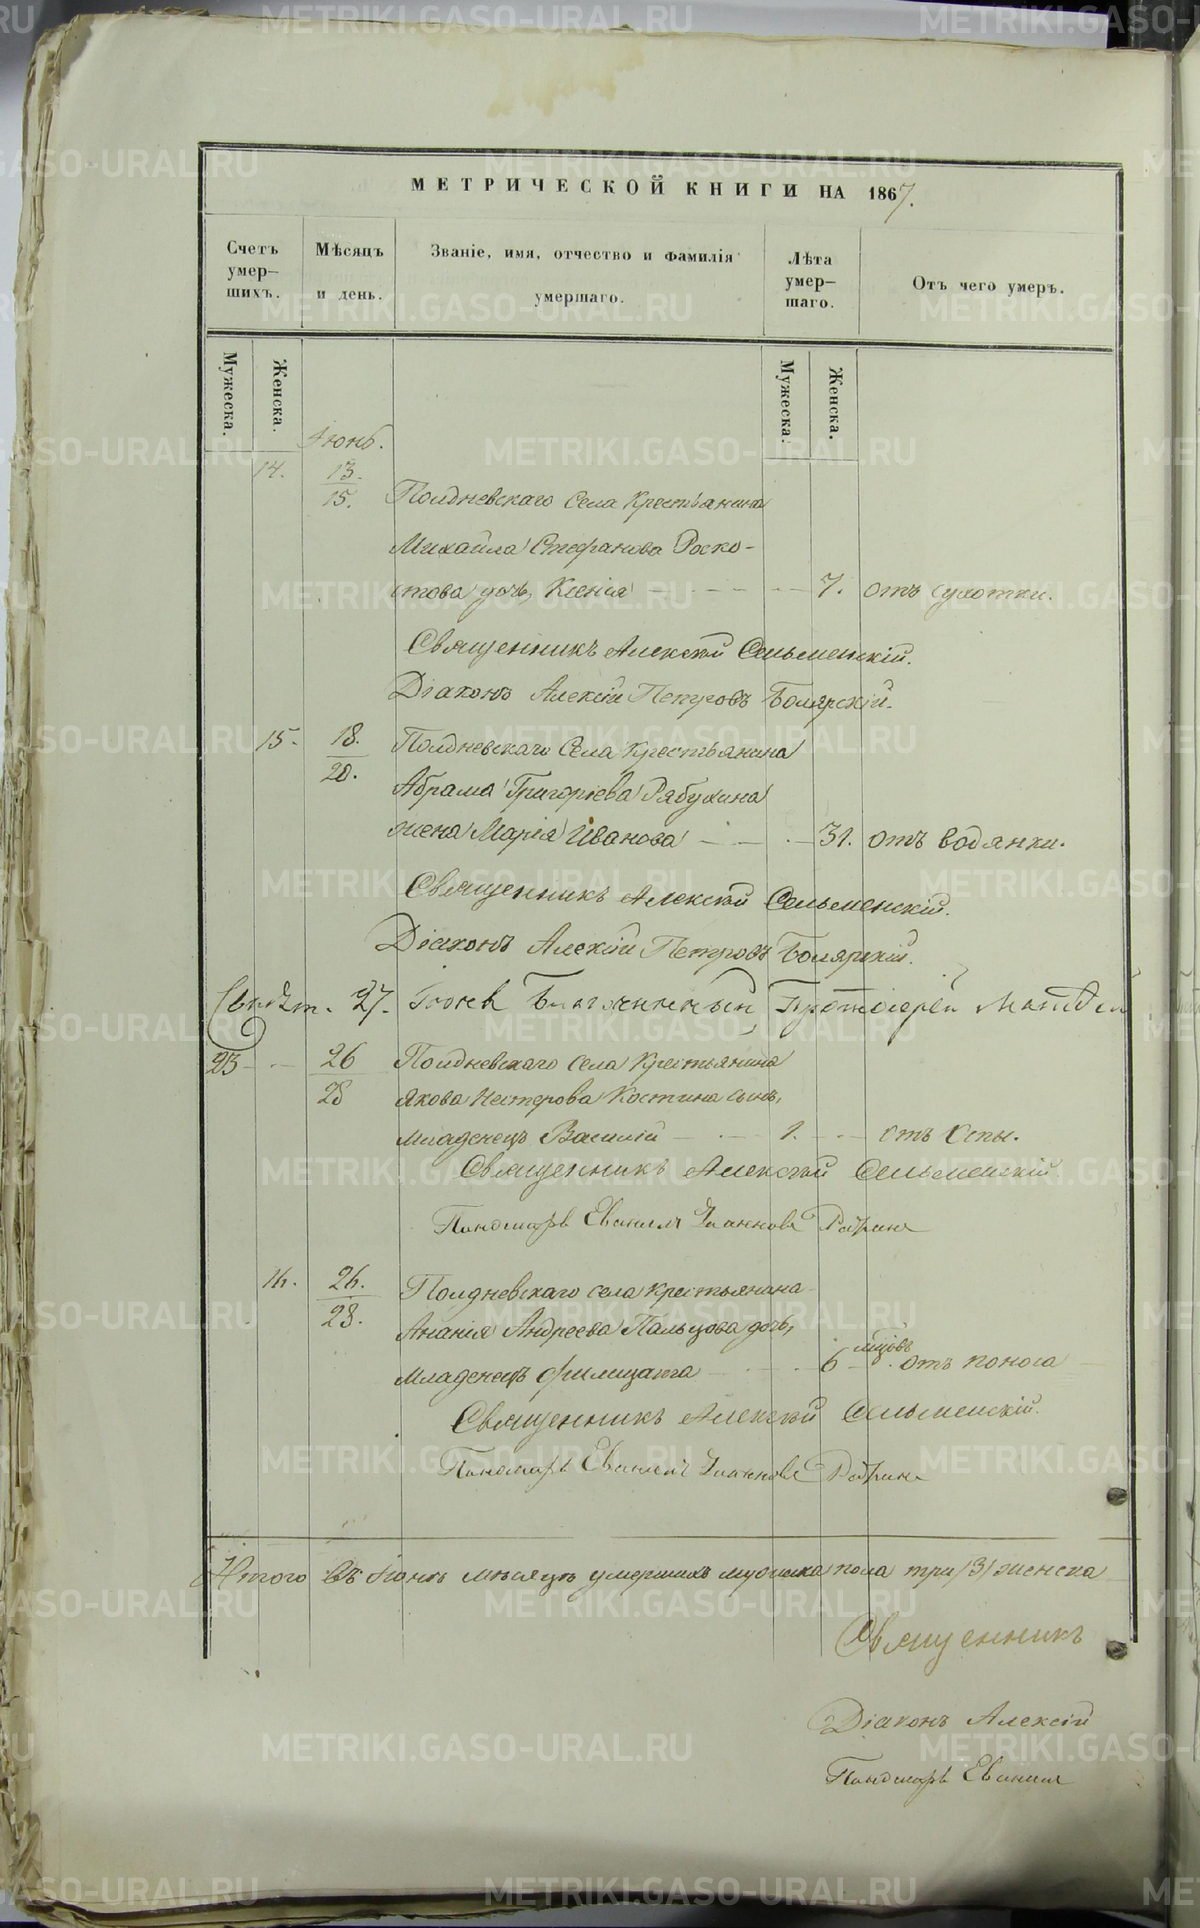 МЕТРИЧЕСКОЙ КНИГИ НА 1867.
Счетъ умер-шихъ.
Мѣсяцъ и день.
Званіе, имя, отчество и фамилія умершаго.
Лѣта умер-шаго.
Отъ чего умеръ.
Мужеска. Женска. Мужеска. Женска.
Іюнь.
14. 13. 15. Полдневскаго села крестьянина
Михаила Стефанова Роско-
стова дочь, Ксенія 7. отъ сухотки.
Священникъ Алексѣй Сельменскій.
Діаконъ Алексій Петровъ Болярскій.
15. 18. 20. Полдневскаго села крестьянина
Абрама Григорьева Рябухина
жена Марія Иванова 31. отъ водянки.
Священникъ Алексѣй Сельменскій.
Діаконъ Алексій Петровъ Болярскій.
Свидѣт. 27. Іюня Благочинный Протоіерей
23 26 28 Полдневскаго села крестьянина
Якова Нестерова Костина сынъ,
младенецъ Василій 1. отъ оспы.
Священникъ Алексѣй Сельменскій
Пономарь Іоанновъ
16. 26. 28. Полдневскаго села крестьянина
Ананія Андреева Пальцова дочь,
младенецъ Филицата 6 мцовъ. отъ поноса
Священникъ Алексѣй Сельменскій.
Пономарь Іоанновъ
Итого въ Іюнѣ мѣсяцѣ умершихъ мужеска пола три /3/ женска
Священникъ
Діаконъ Алексій
Пономарь
METRIKI.GASO-URAL.RU